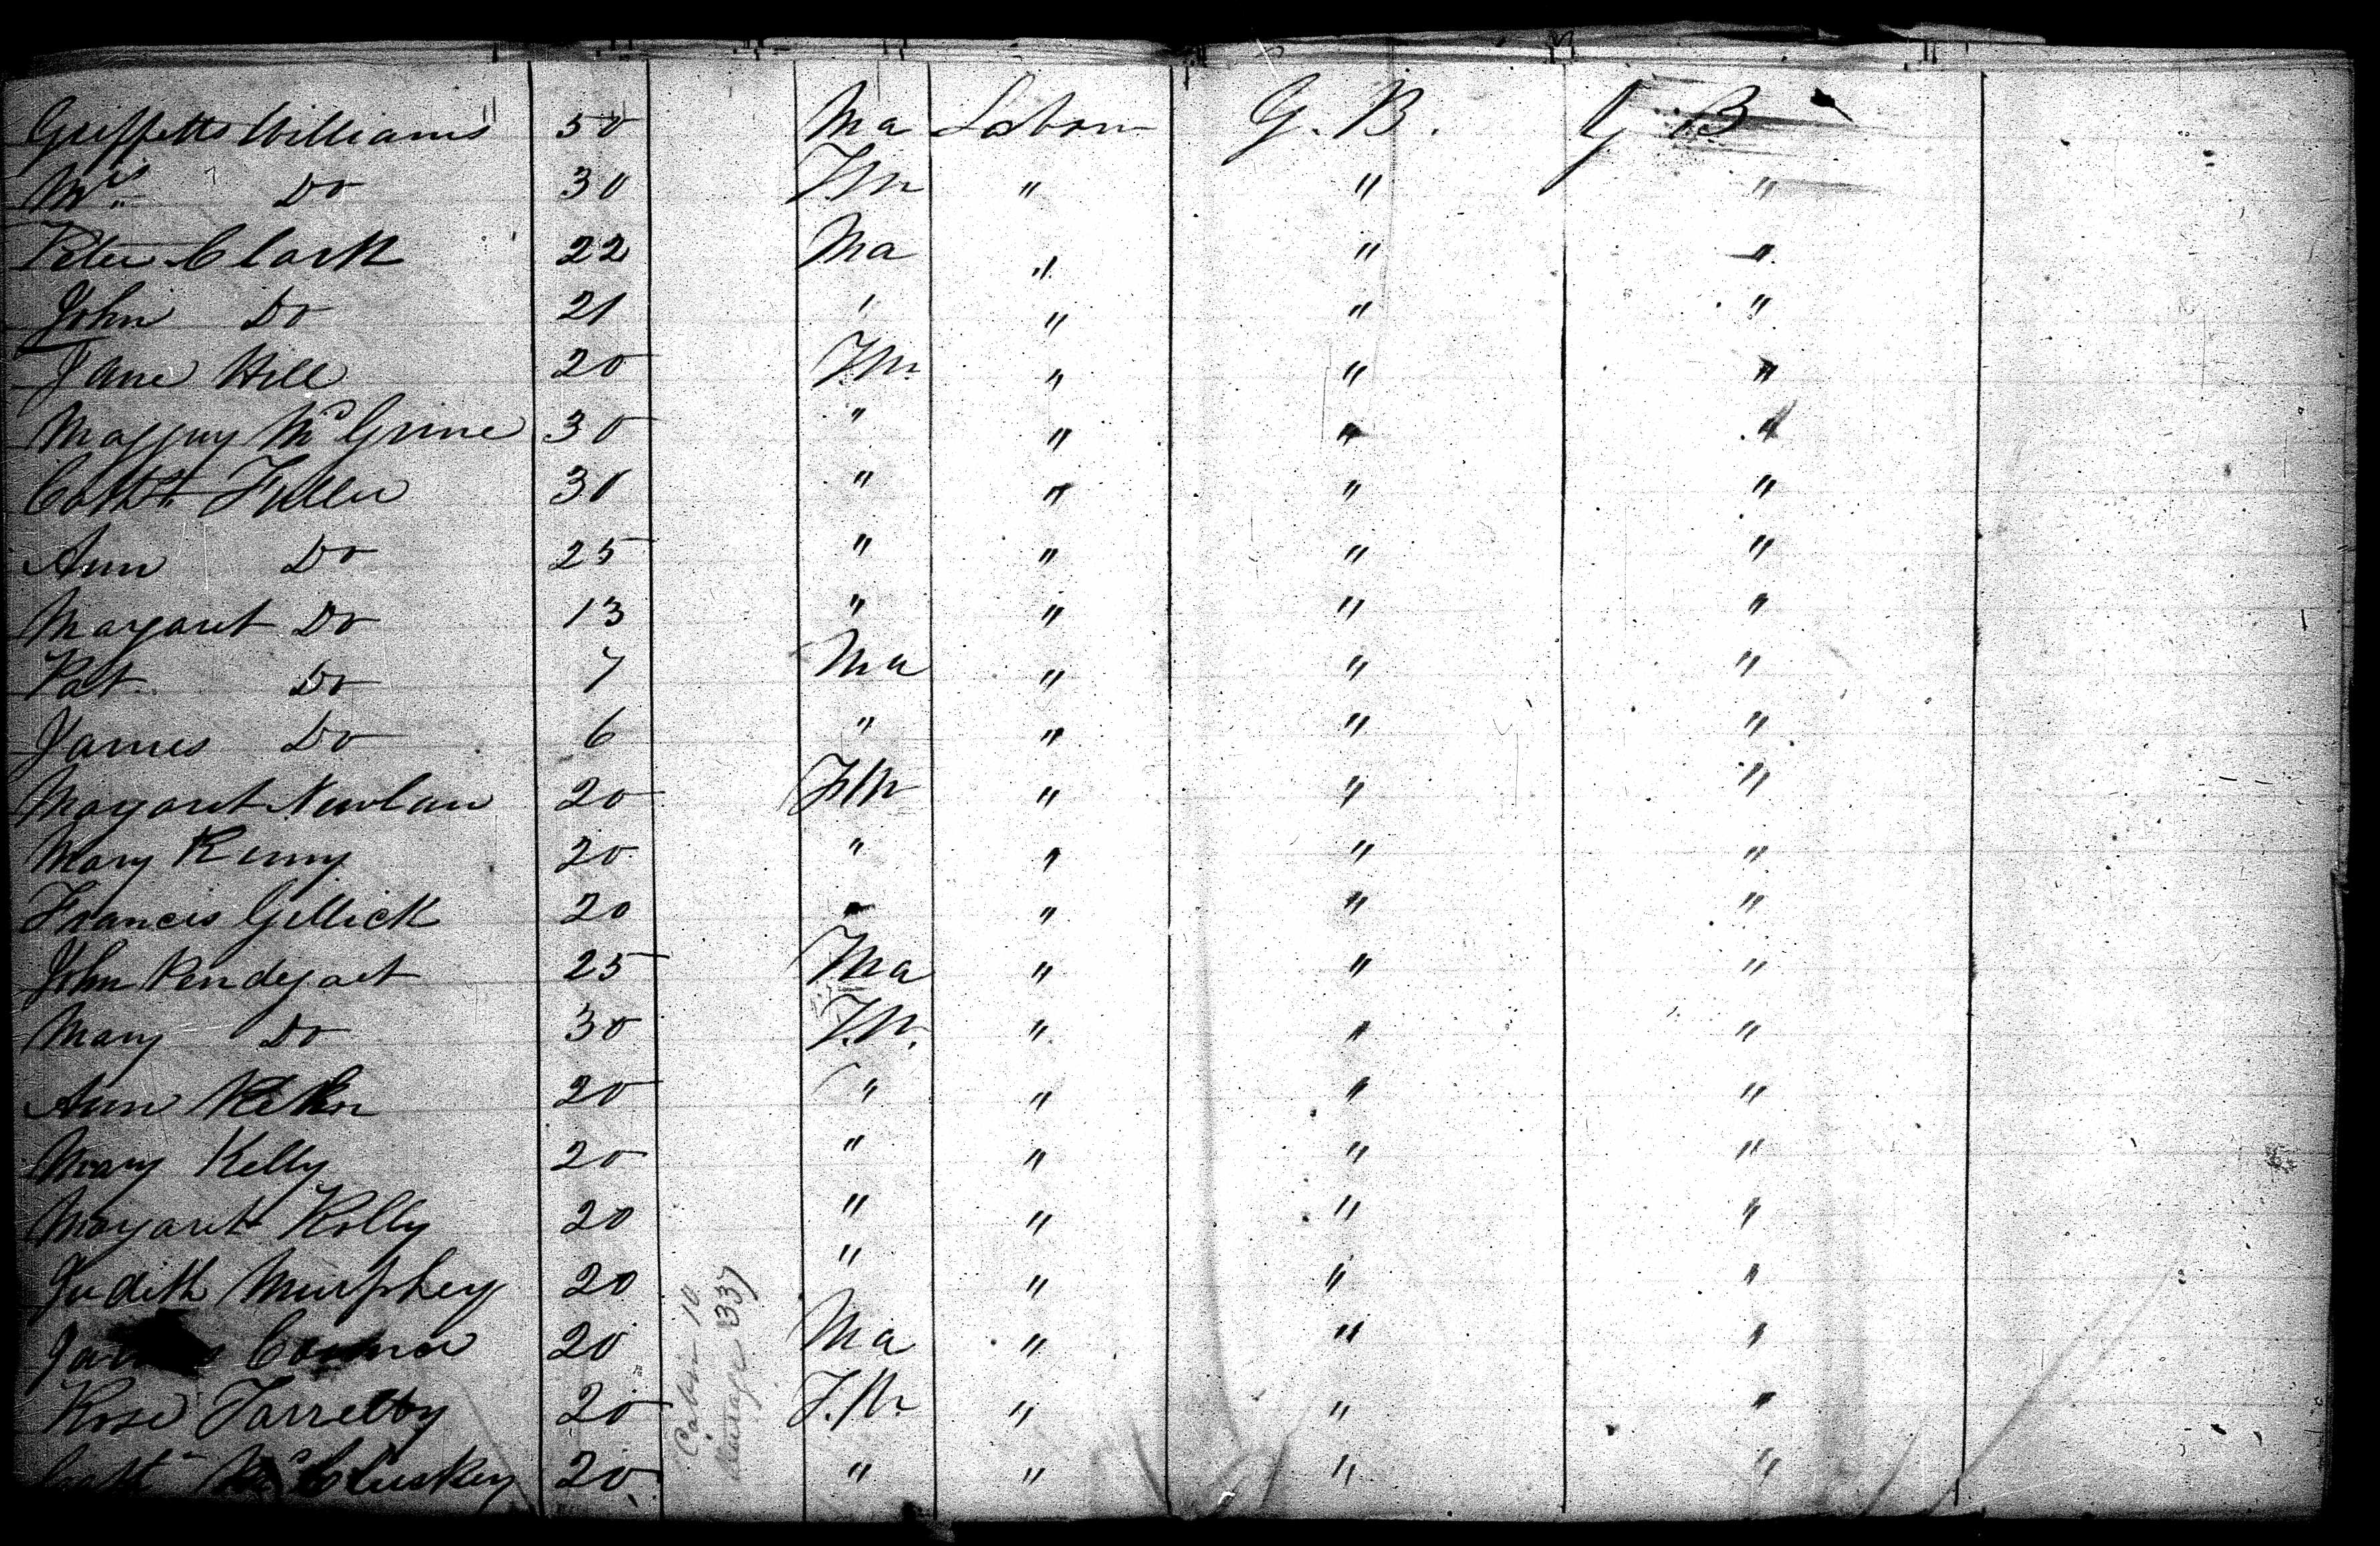 Griffetts Williams 50 Ma Labour G. B. G B
Mrs Do 30 Fm " " "
Peter Clark 22 Ma " " "
John Do 21 " " " "
Jane Hill 20 Fm. " " "
Mc Grine 30 " " " "
Cath Fuller 30 " " " "
Ann Do 25 " " " "
Margaret Do 13 " " " "
Pat Do 7 Ma " " "
James Do 6 " " " "
Margaret Newlan 20 Fm " " "
Mary Kenny 20 " " " "
Francis Gellick 20 " " " "
John Pendegast 25 Ma " " "
Mary Do 30 F.m. " " "
Ann 20 " " " "
Mary Kelly 20 " " " "
Margaret Kelly 20 " " " "
Judith Murphey 20 " " " "
James Connor 20 Ma " " "
Rose 20 F.m. " " "
Cath Mc Cluskey 20 " " " "
Cabin 10
337